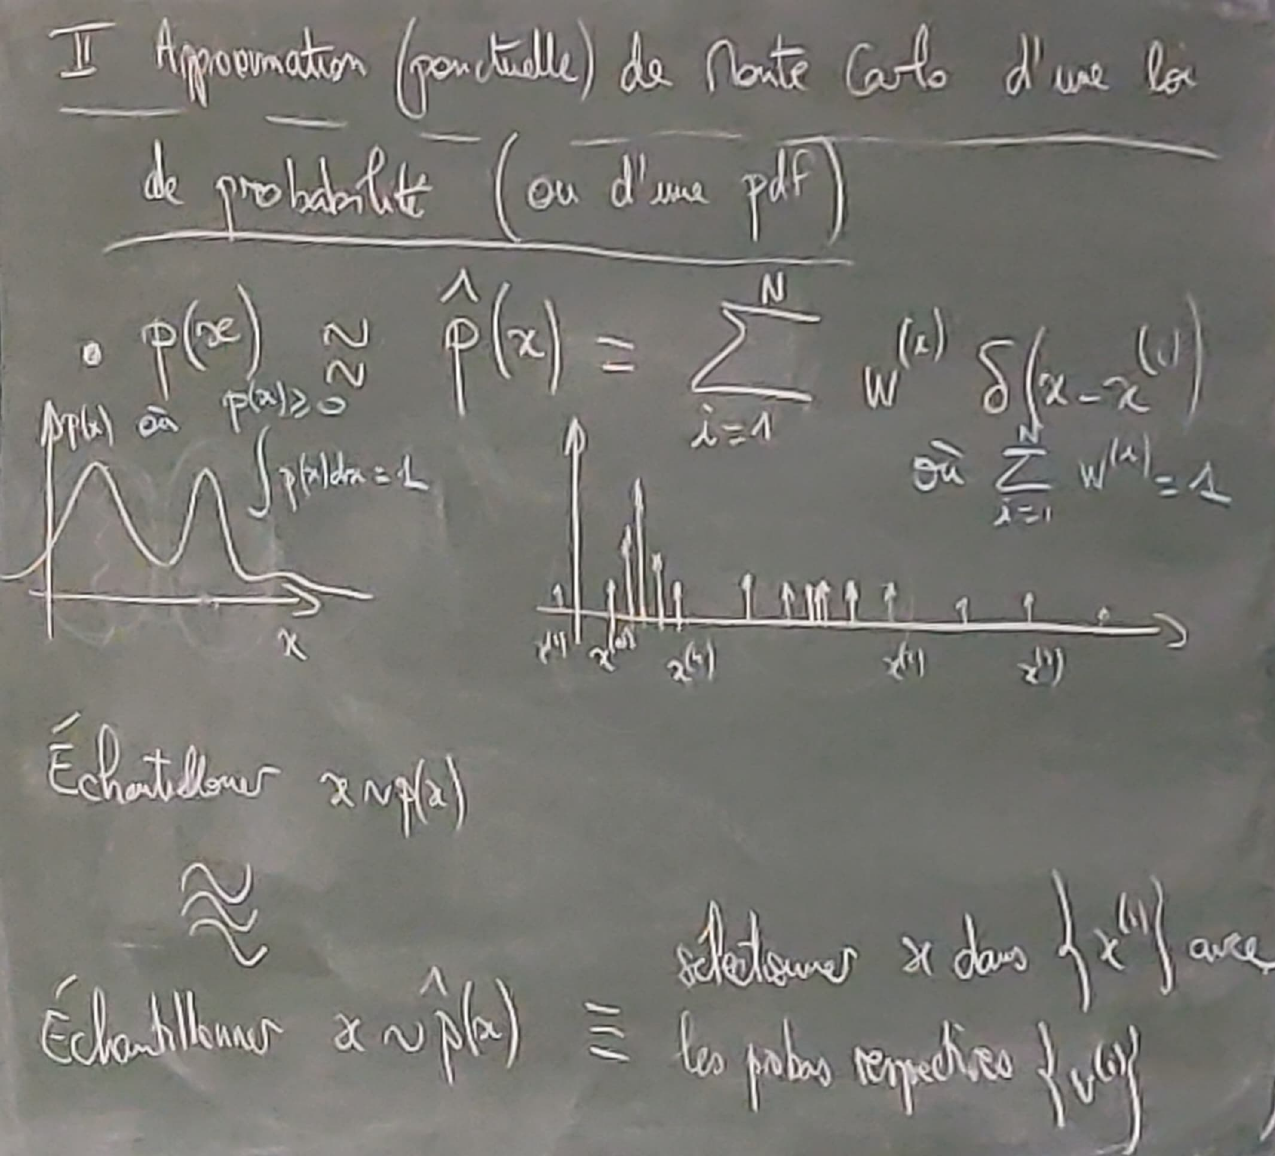 II Approximation (ponctuelle) de Monte Carlo d'une loi
de probabilité (ou d'une pdf)
• p(x) ≈ p̂(x) = ∑_{i=1}^{N} w^{(i)} δ(x - x^{(i)})
où p(x) ≥ 0
∫ p(x) dx = 1
où ∑_{i=1}^{N} w^{(i)} = 1
p(x)
x
x^{(i)}
x^{(i)}
x^{(i)}
Échantillonner x ~ p(x)
≈
Échantillonner x ~ p̂(x) ≡ sélectionner x dans {x^{(i)}} avec
les probas respectives {w^{(i)}}